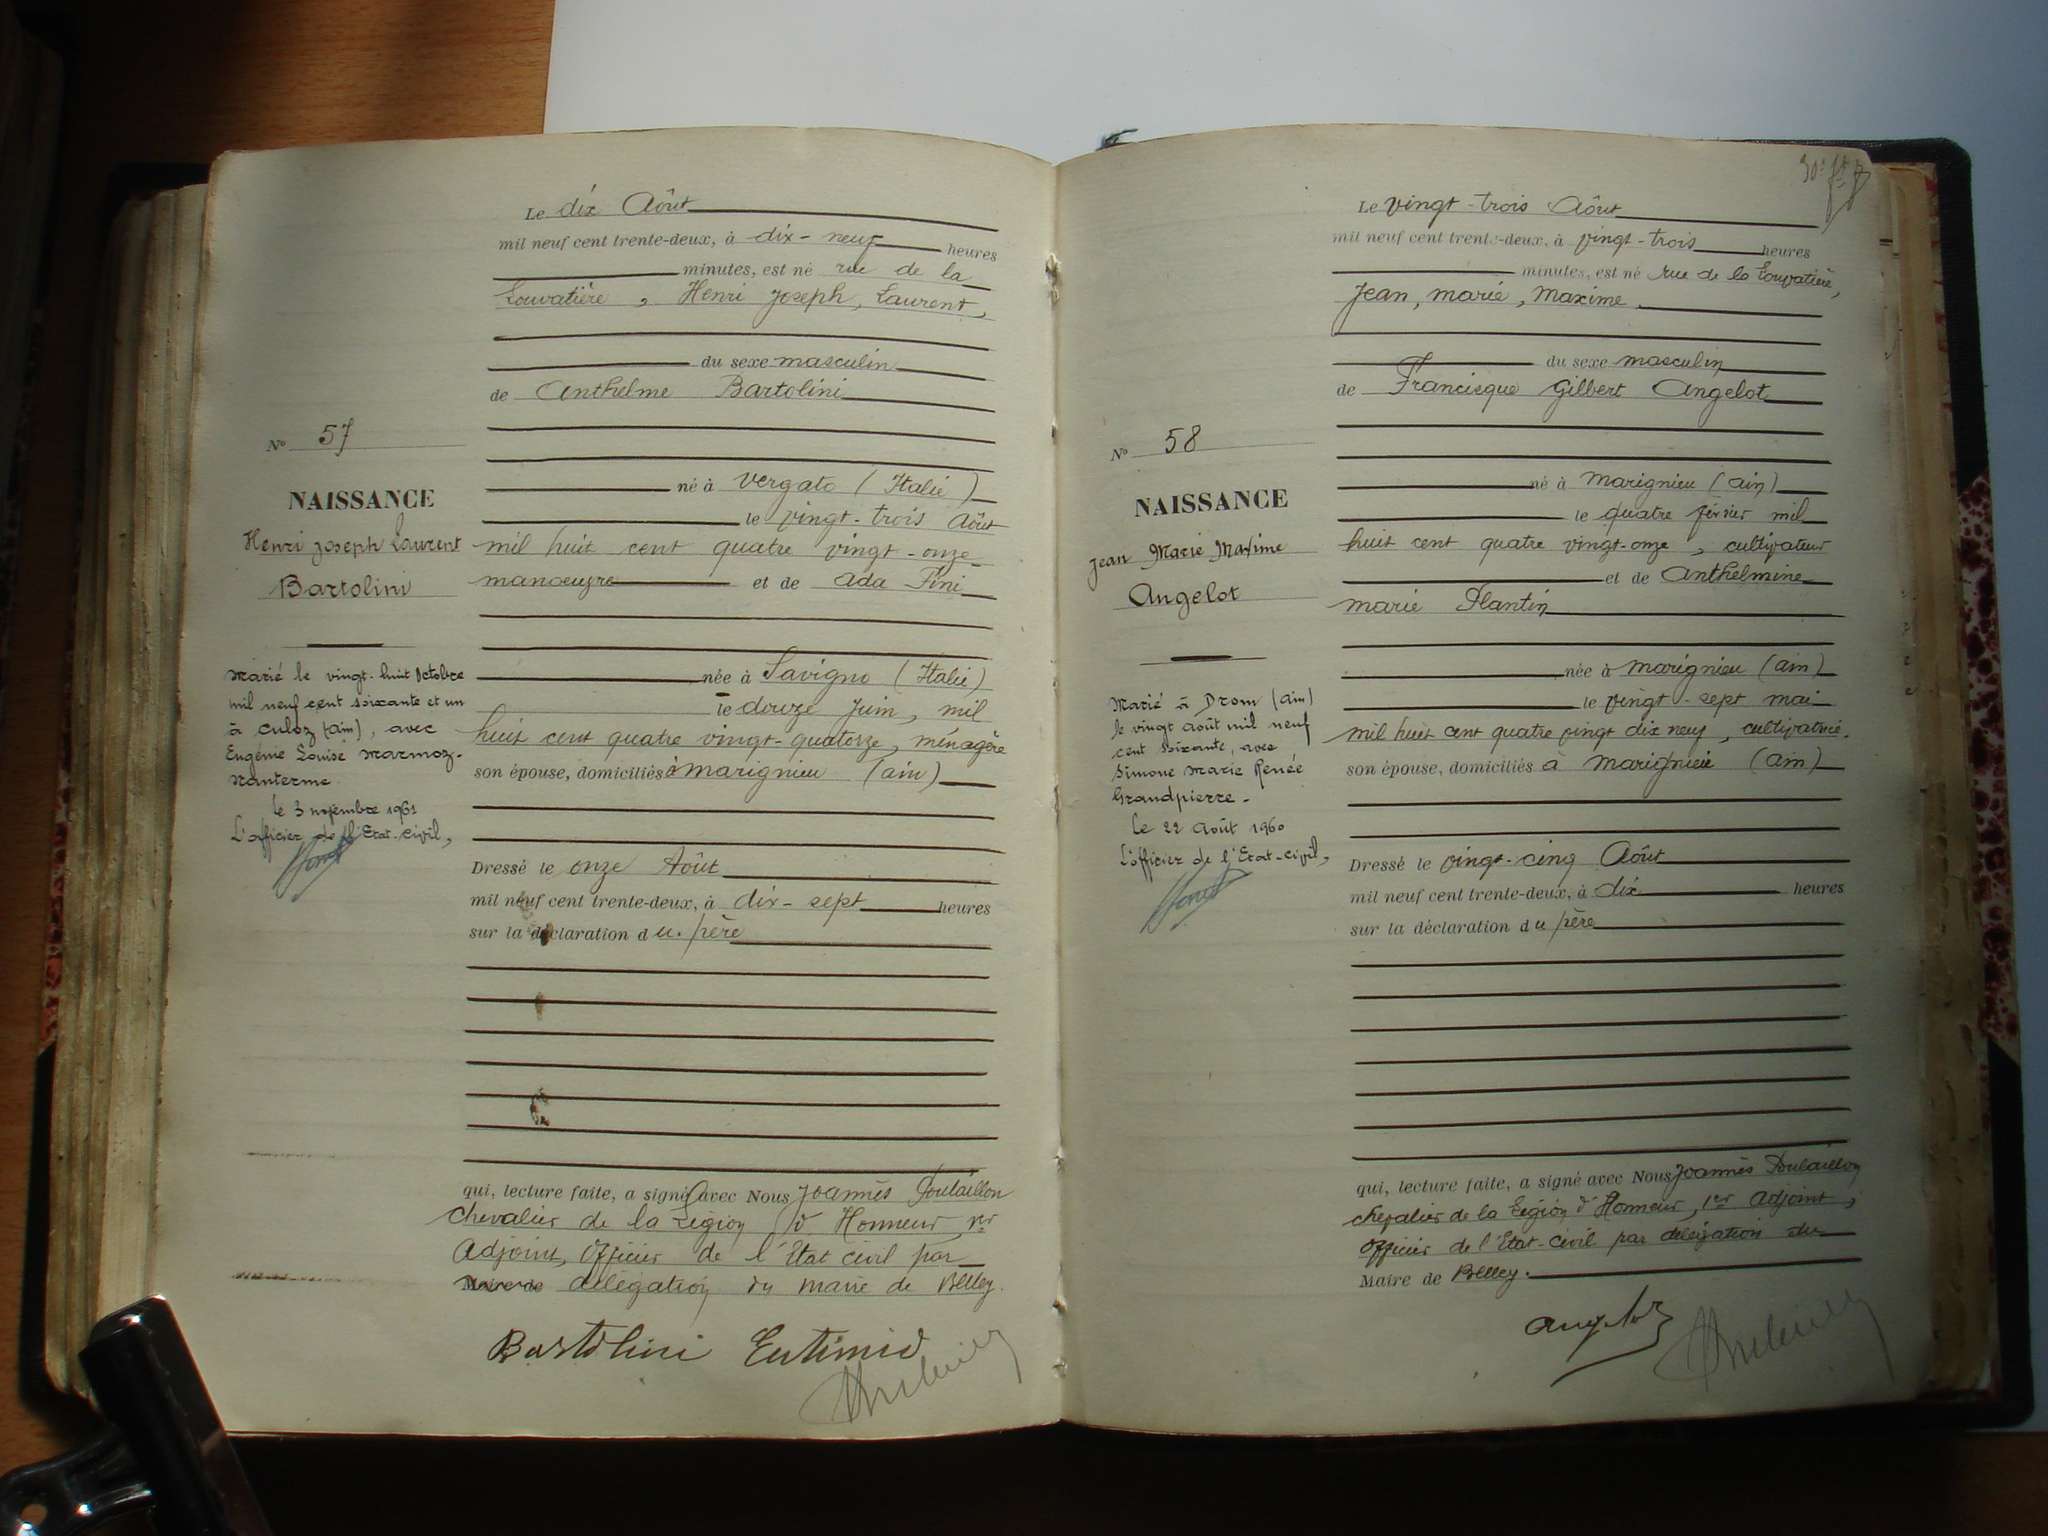 Le dix Aôut
mil neuf cent trente-deux, à dix-neuf heures
minutes, est né rue de la
Louvatière, Henri Joseph, Laurent,
du sexe masculin
de Anthelme Bartolini
né à Vergato (Italie)
le vingt-trois Aôut
mil huit cent quatre vingt-onze
manoeuvre et de Ada Fini
née à Savigno (Italie)
le douze Juin, mil
huit cent quatre vingt-quatorze, ménagère
son épouse, domiciliés à Marignieu (ain)
Dressé le onze Aôut
mil neuf cent trente-deux, à dix-sept heures
sur la déclaration du père
qui, lecture faite, a signé avec Nous Joannès Poulaillon
Chevalier de la Légion d'Honneur, 1er
Adjoint, Officier de l'Etat civil par
Maire de délégation du Maire de Belley.
Bartolini Eutimio
No 57
NAISSANCE
Henri Joseph Laurent
Bartolini
Marié le vingt-huit Octobre
mil neuf cent soixante et un
à Culoz (ain), avec
Eugénie Louise Marmoz-
Nanterme.
le 3 novembre 1961
L'officier de l'Etat-civil,
Le vingt-trois Aôut
mil neuf cent trente-deux, à vingt-trois heures
minutes, est né rue de la Louvatière,
Jean, Marie, Maxime
du sexe masculin
de Francisque Gilbert Angelot
né à Marignieu (ain)
le quatre février mil
huit cent quatre vingt-onze, cultivateur
et de Anthelmine
Marie Plantin
née à Marignieu (ain)
le vingt-sept mai
mil huit cent quatre vingt dix neuf, cultivatrice.
son épouse, domiciliés à Marignieu (ain)
Dressé le vingt-cinq Aôut
mil neuf cent trente-deux, à dix heures
sur la déclaration du père
qui, lecture faite, a signé avec Nous Joannès Poulaillon
chevalier de la Légion d'Honneur, 1er Adjoint,
Officier de l'Etat-civil par délégation du
Maire de Belley.
Angelot
No 58
NAISSANCE
Jean Marie Maxime
Angelot
Marié à Drom (ain)
le vingt août mil neuf
cent soixante, avec
Simone Marie Renée
Grandpierre-
Le 22 août 1960
L'officier de l'Etat-civil,